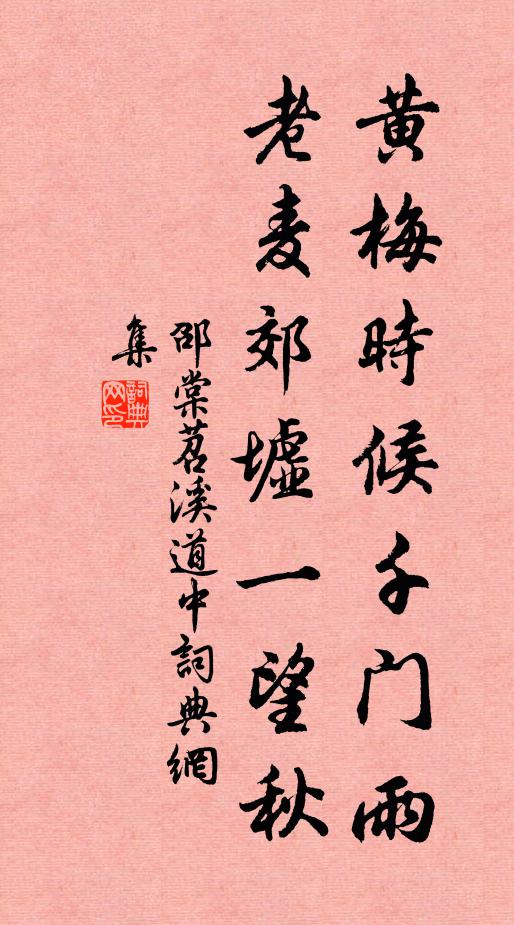 黄梅時候千门雨
老麦郊墟一望秋
邵棠苕溪道中詞典網
集
詞典
网印